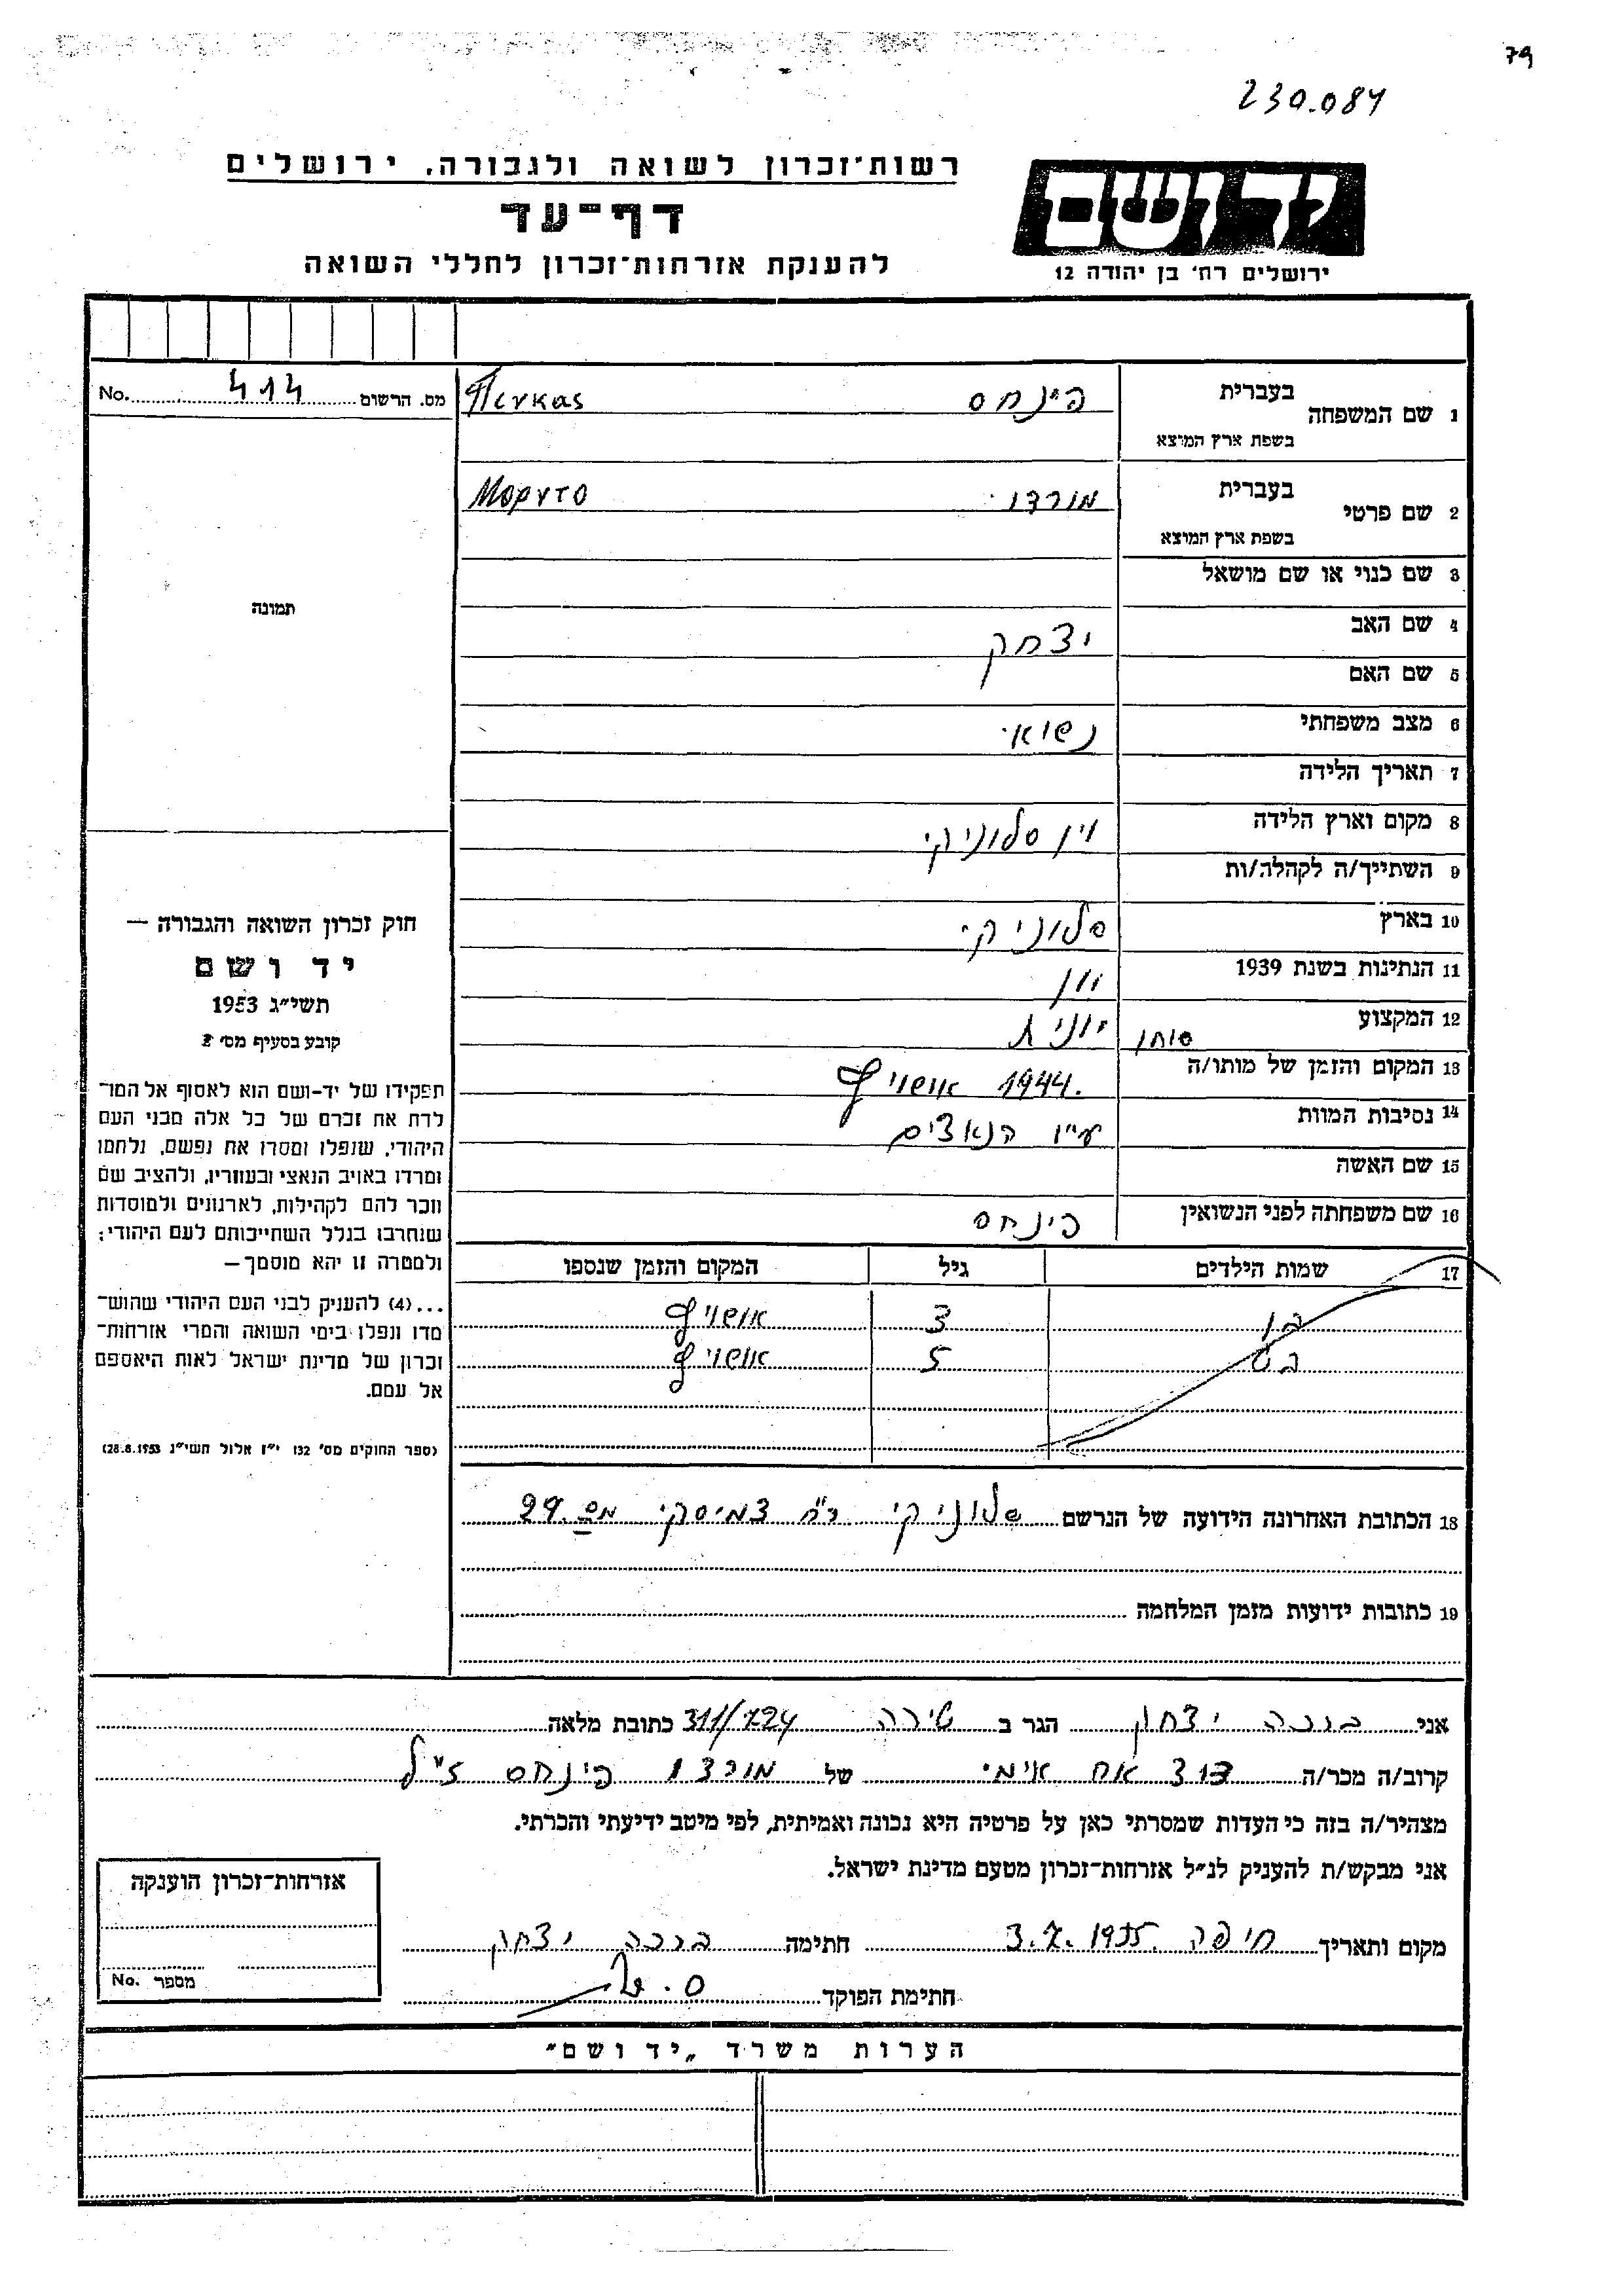 79
230.084
רשות־זכרון לשואה ולגבורה, ירושלים
דף־עד
להענקת אזרחות־זכרון לחללי השואה
יד ושם
ירושלים רח' בן יהודה 12
מס. הרשום 414 No.
1 שם המשפחה בעברית פינחס Πενκας
בשפת ארץ המוצא
2 שם פרטי בעברית מורדו Μορντο
בשפת ארץ המוצא
3 שם כנוי או שם מושאל
4 שם האב יצחק
5 שם האם
6 מצב משפחתי נשוא
7 תאריך הלידה
8 מקום וארץ הלידה יון סלוניקי
9 השתייך/ה לקהלה/ות
10 בארץ סלוניקי
11 הנתינות בשנת 1939 יון
12 המקצוע סוחן
13 המקום והזמן של מותו/ה 1944 אושויץ
14 נסיבות המוות ע"י הנאצים
15 שם האשה
16 שם משפחתה לפני הנשואין פינחס
17 שמות הילדים גיל המקום והזמן שנספו
בן 3 אושויץ
בת 5 אושויץ
18 הכתובת האחרונה הידועה של הנרשם סלוניקי רח צמיסקי מס 29
19 כתובות ידועות מזמן המלחמה
תמונה
חוק זכרון השואה והגבורה —
יד ושם
תשי"ג 1953
קובע בסעיף מס' 2
תפקידו של יד־ושם הוא לאסוף אל המו־
לדת את זכרם של כל אלה מבני העם
היהודי, שנפלו ומסרו את נפשם, נלחמו
ומרדו באויב הנאצי ובעוזריו, ולהציב שם
וזכר להם לקהילות, לארגונים ולמוסדות
שנחרבו בגלל השתייכותם לעם היהודי;
ולמטרה זו יהא מוסמך —
...(4) להעניק לבני העם היהודי שהוש־
מדו ונפלו בימי השואה והמרי אזרחות־
זכרון של מדינת ישראל לאות היאספם
אל עמם.
(ספר החוקים מס' 132 י"ז אלול תשי"ג 28.8.1953)
אני ברכה יצחק הגר ב טירה 311/724 כתובת מלאה
קרוב/ה מכר/ה דוד אח אימי של מורדו פינחס ז"ל
מצהיר/ה בזה כי העדות שמסרתי כאן על פרטיה היא נכונה ואמיתית, לפי מיטב ידיעתי והכרתי.
אני מבקש/ת להעניק לנ"ל אזרחות־זכרון מטעם מדינת ישראל.
מקום ותאריך חיפה 3.7.1955 חתימה ברכה יצחק
חתימת הפוקד
אזרחות־זכרון הוענקה
מספר No.
הערות משרד „יד ושם"